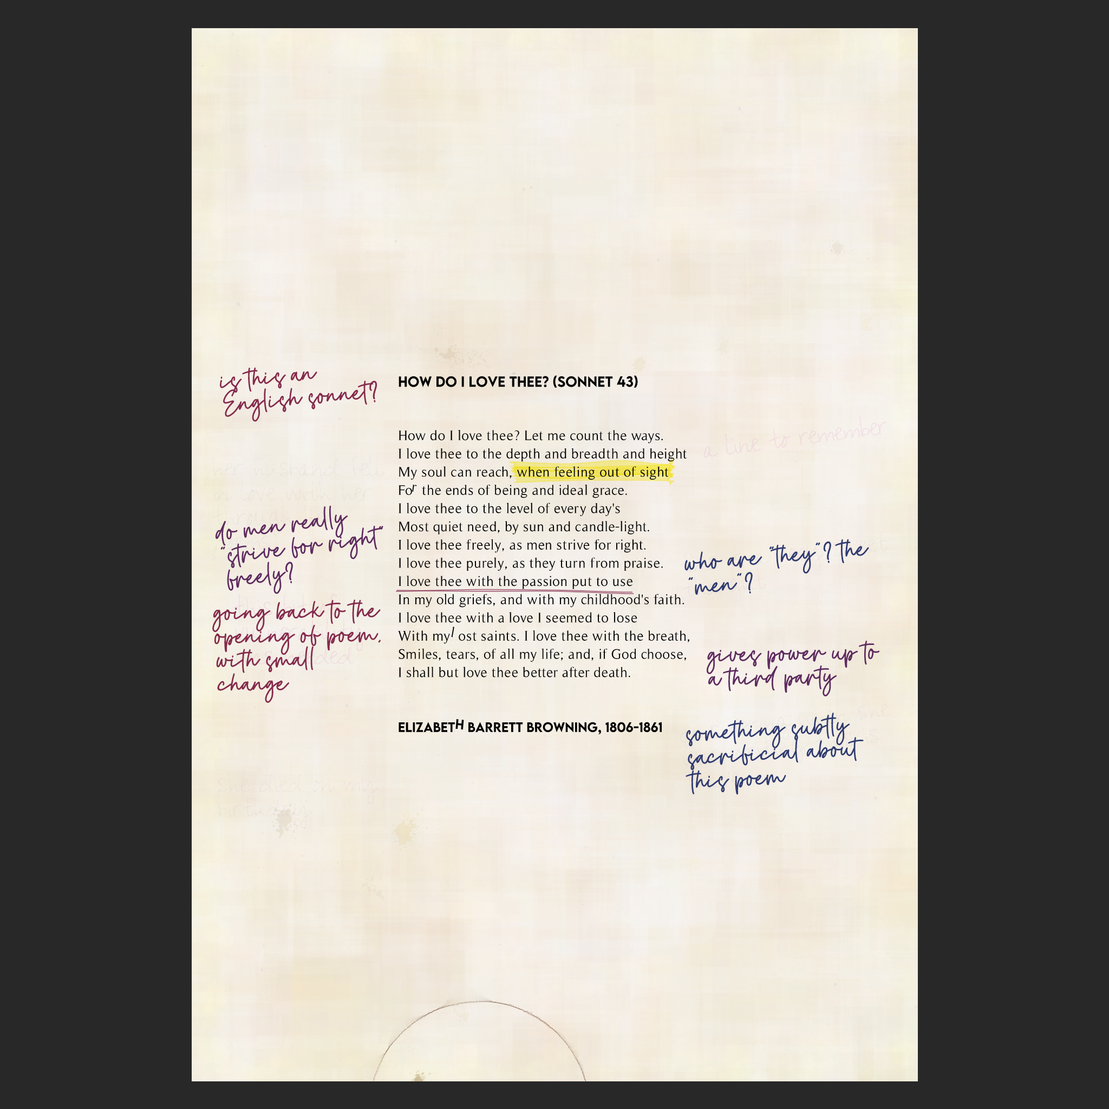 is this an
English sonnet?
HOW DO I LOVE THEE? (SONNET 43)
How do I love thee? Let me count the ways.
I love thee to the depth and breadth and height
My soul can reach, when feeling out of sight
For the ends of being and ideal grace.
I love thee to the level of every day's
Most quiet need, by sun and candle-light.
I love thee freely, as men strive for right.
I love thee purely, as they turn from praise.
I love thee with the passion put to use
In my old griefs, and with my childhood's faith.
I love thee with a love I seemed to lose
With my lost saints. I love thee with the breath,
Smiles, tears, of all my life; and, if God choose,
I shall but love thee better after death.
ELIZABETH BARRETT BROWNING, 1806-1861
a line to remember
do men really
"strive for right"
freely?
going back to the
opening of poem,
with small
change
who are "they"? the
"men"?
gives power up to
a third party
something subtly
sacrificial about
this poem